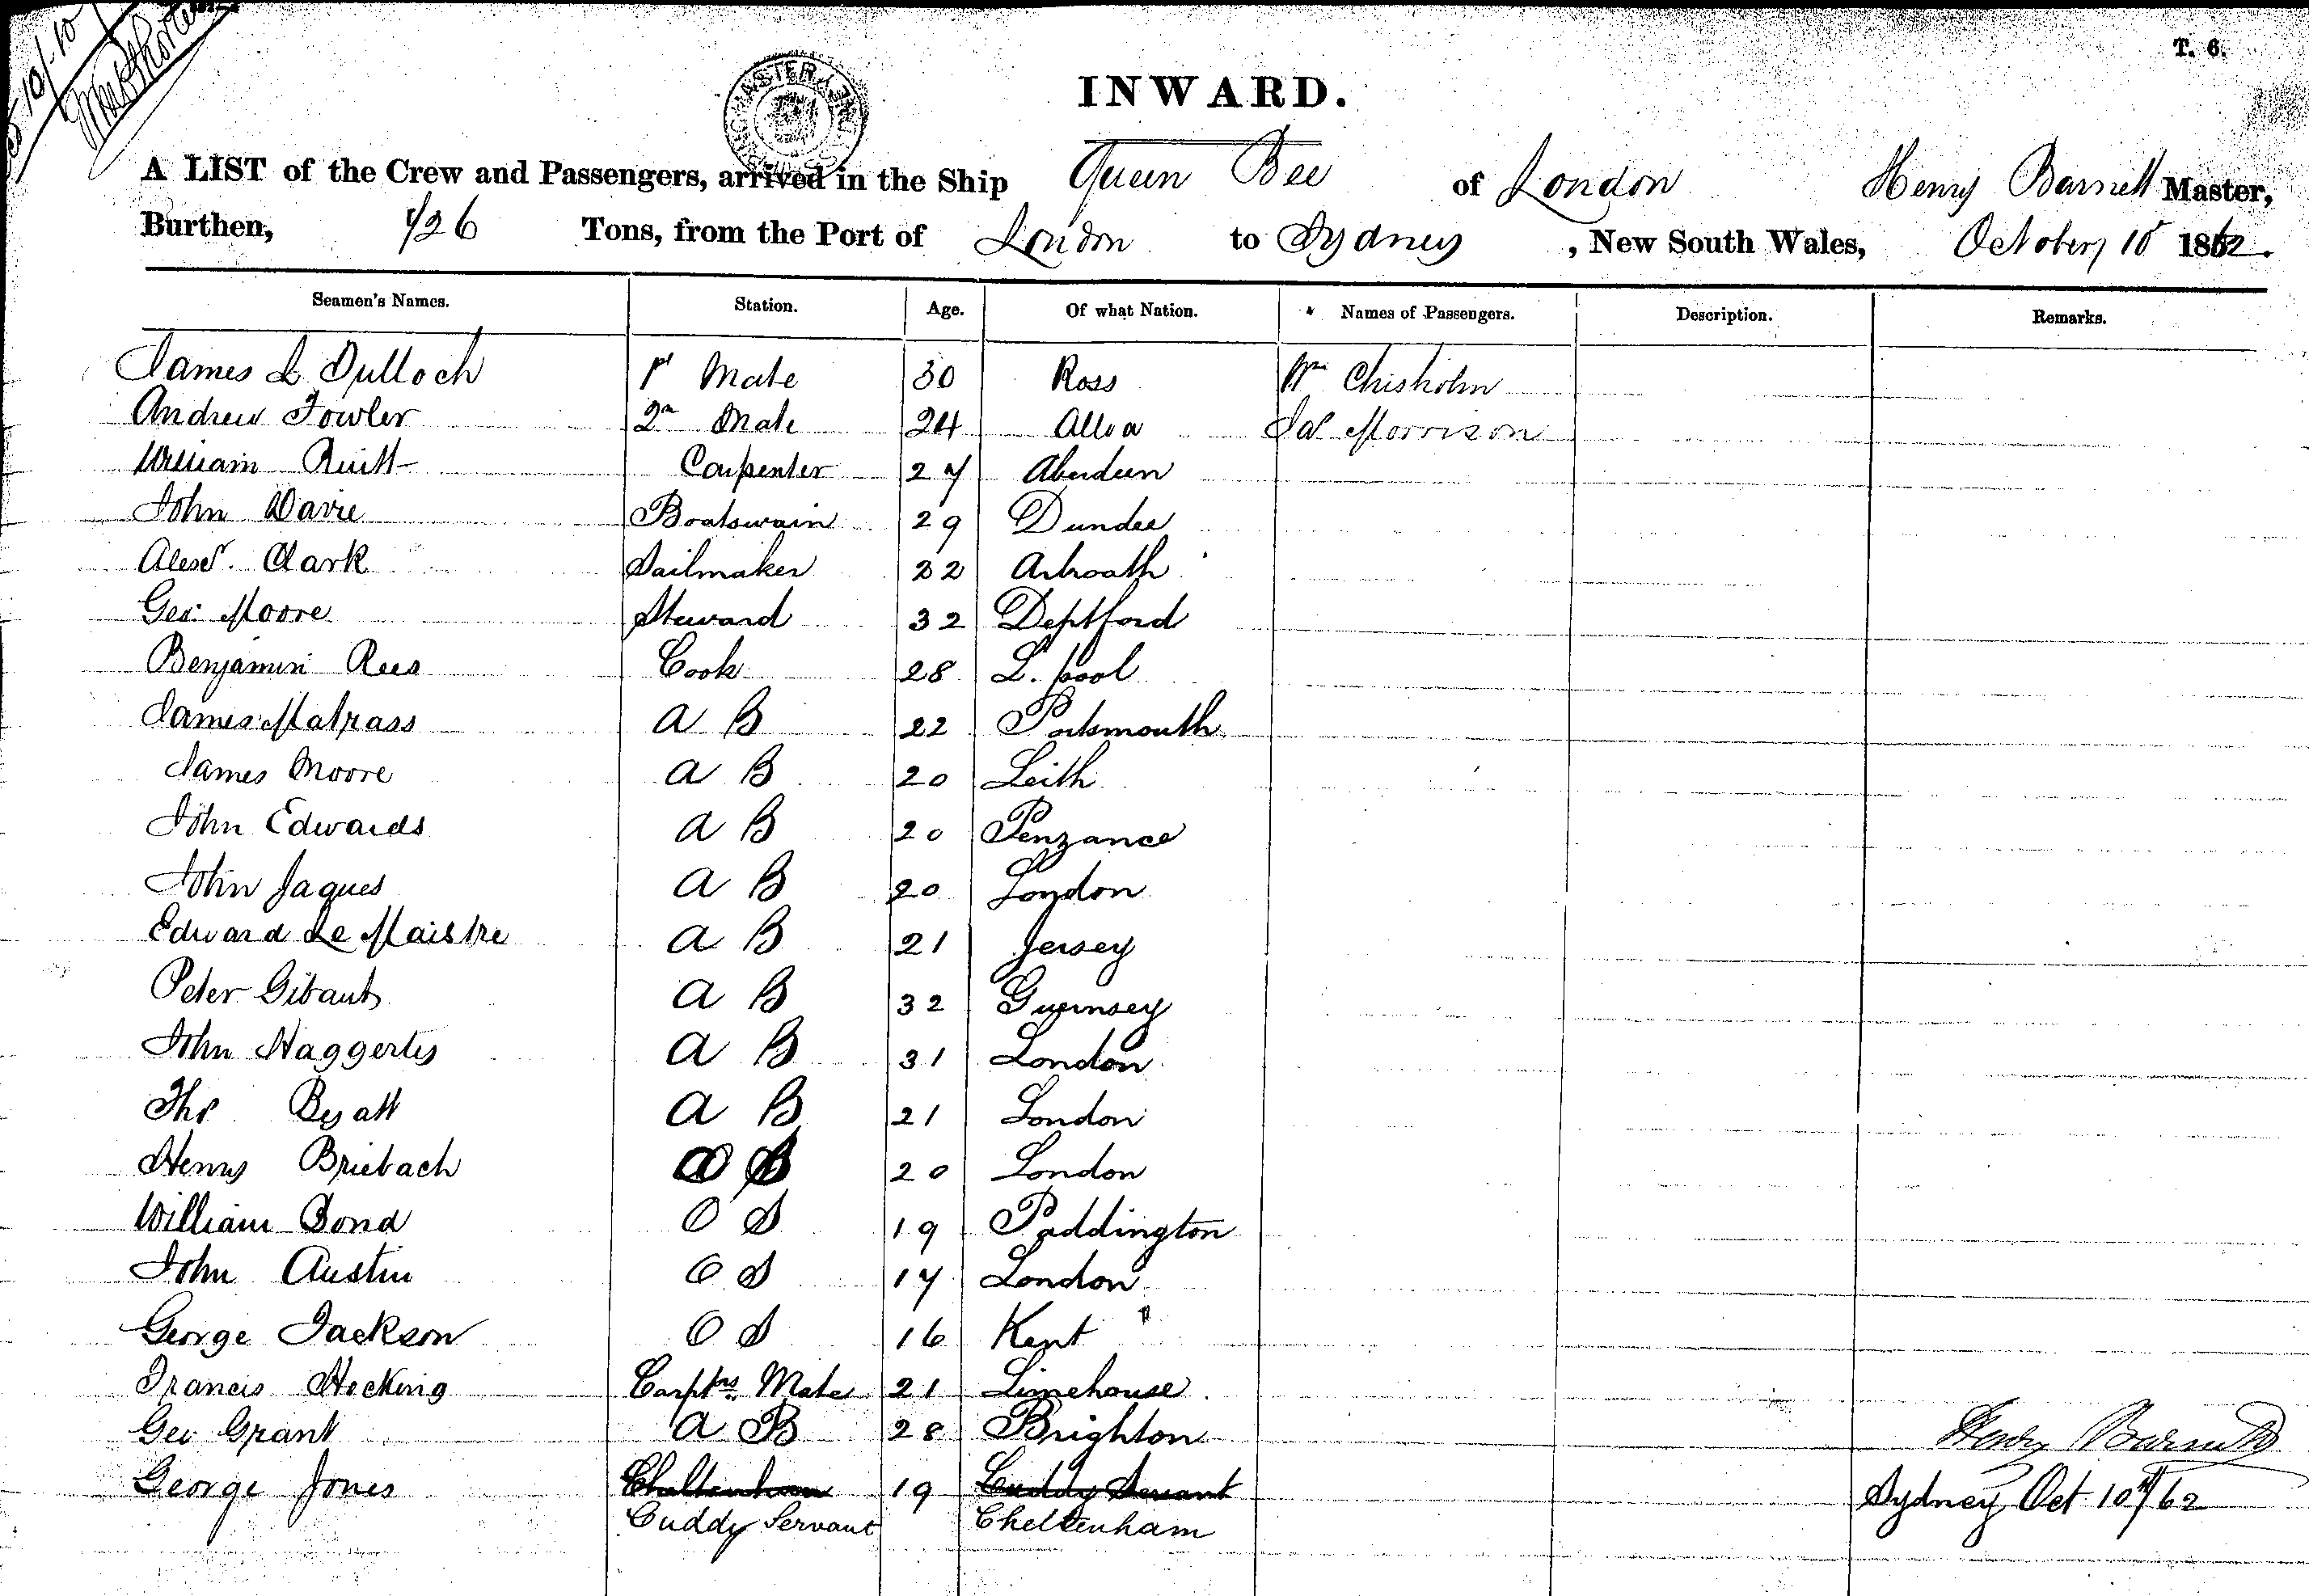 T. 6.
INWARD.
A LIST of the Crew and Passengers, arrived in the Ship Queen Bee of London Henry Barnett Master,
Burthen, 726 Tons, from the Port of London to Sydney, New South Wales, October 10 1862.
Seamen's Names. Station. Age. Of what Nation. Names of Passengers. Description. Remarks.
James Mate 30 Ross Wm Chisholm
Andrew Fowler 2n Mate 24 Alloa Jas Morrison
William Carpenter 27 Aberdeen
John Davie Boatswain 29 Dundee
Alexr. Clark Sailmaker 22 Arbroath
Geo: Moore Steward 32 Deptford
Benjamin Rees Cook 28 L. pool
James Malpass A B 22 Portsmouth
James Moore A B 20 Leith
John Edwards A B 20 Penzance
John Jaques A B 20 London
Edward Le Maistre A B 21 Jersey
Peter Gibaut A B 32 Guernsey
John Haggerty A B 31 London
Thos Byatt A B 21 London
Henry Briebach O S 20 London
William Bond O S 19 Paddington
John Austin O S 17 London
George Jackson O S 16 Kent
Francis Hocking Carptrs Mate 21 Limehouse
Geo Grant A B 28 Brighton Henry Barnett
George Jones Cheltenham 19 Cuddy Servant Sydney Oct 10th/62
Cuddy Servant Cheltenham